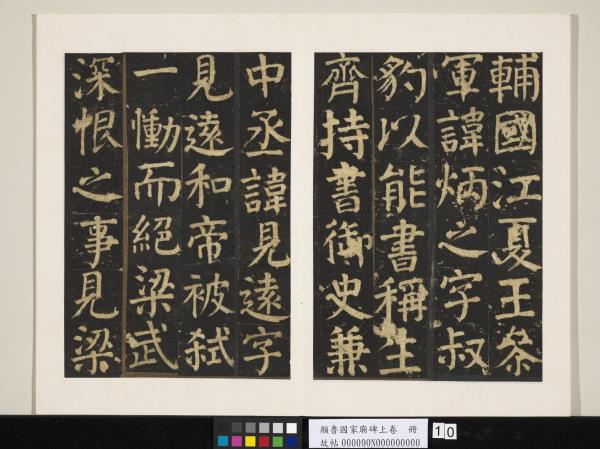 輔國江夏王參
軍諱炳之字叔
豹以能書稱生
齊持書御史兼
中丞諱見遠字
見遠和帝被弒
一慟而絕梁武
深恨之事見梁
顏魯國家廟碑上卷 冊
故帖 000090N000000000
10